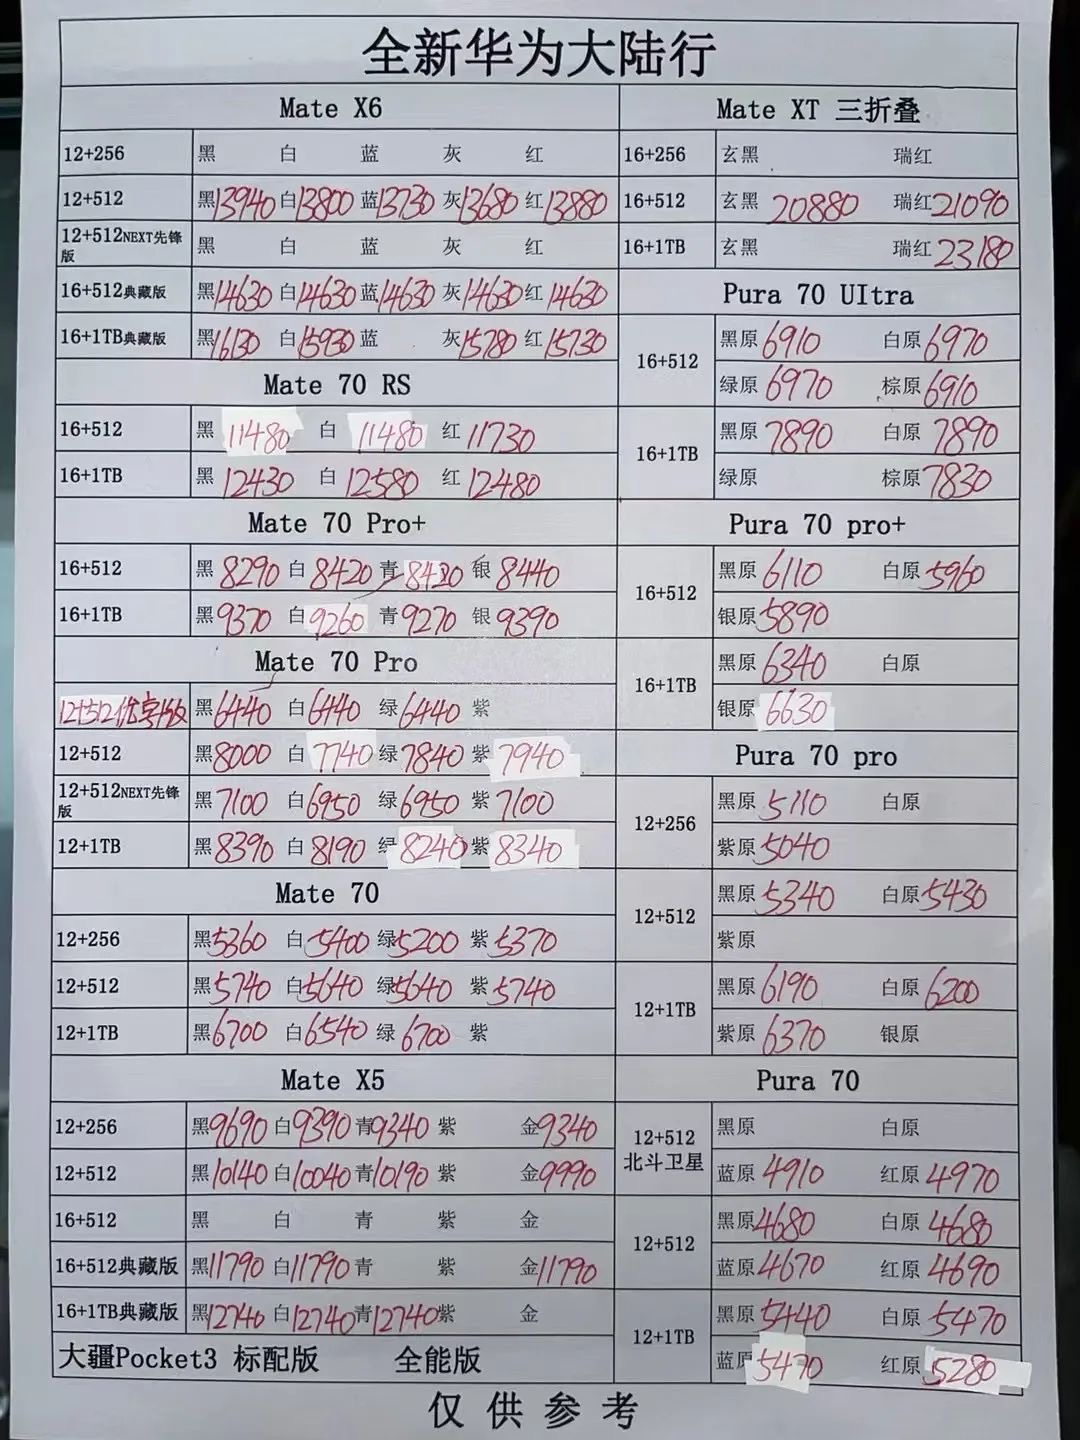 全新华为大陆行
Mate X6
12+256 黑 白 蓝 灰 红
12+512 黑13940 白13800 蓝13730 灰13680 红13880
12+512NEXT先锋版 黑 白 蓝 灰 红
16+512典藏版 黑14630 白14630 蓝14630 灰14630 红14630
16+1TB典藏版 黑16130 白15930 蓝 灰15780 红15730
Mate 70 RS
16+512 黑 11480 白 11480 红 11730
16+1TB 黑 12430 白 12580 红 12480
Mate 70 Pro+
16+512 黑 8290 白 8420 青 8420 银 8440
16+1TB 黑 9370 白 9260 青 9270 银 9390
Mate 70 Pro
12+512优享版 黑6440 白6440 绿6440 紫
12+512 黑8000 白 7740 绿7840 紫 7940
12+512NEXT先锋版 黑7100 白6950 绿6950 紫7100
12+1TB 黑8390 白8190 绿8240 紫8340
Mate 70
12+256 黑5360 白5400 绿5200 紫5370
12+512 黑5740 白5640 绿5640 紫5740
12+1TB 黑6700 白6540 绿6700 紫
Mate X5
12+256 黑9690 白9390 青9340 紫 金9340
12+512 黑10140 白10040 青10190 紫 金9990
16+512 黑 白 青 紫 金
16+512典藏版 黑11790 白11790 青 紫 金11790
16+1TB典藏版 黑12740 白12740 青12740 紫 金
大疆Pocket3 标配版 全能版
Mate XT 三折叠
16+256 玄黑 瑞红
16+512 玄黑 20880 瑞红21090
16+1TB 玄黑 瑞红23180
Pura 70 UItra
16+512 黑原6910 白原6970
绿原6970 棕原6910
16+1TB 黑原7890 白原7890
绿原 棕原7830
Pura 70 pro+
16+512 黑原6110 白原5960
银原5890
16+1TB 黑原6340 白原
银原6630
Pura 70 pro
12+256 黑原5110 白原
紫原5040
12+512 黑原5340 白原5430
紫原
12+1TB 黑原6190 白原6200
紫原6370 银原
Pura 70
12+512北斗卫星 黑原 白原
蓝原4910 红原4970
12+512 黑原4680 白原4680
蓝原4670 红原4690
12+1TB 黑原5440 白原5470
蓝原5470 红原5280
仅供参考